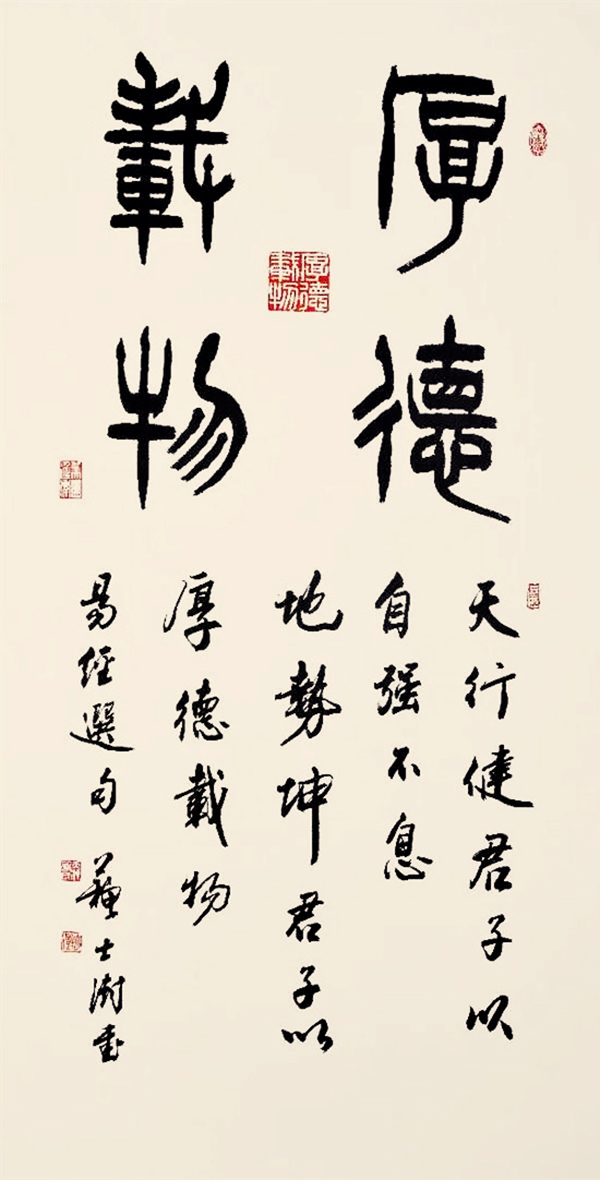 厚德
載物
厚德載物
天行健君子以
自强不息
地勢坤君子以
厚德載物
易經選句 蘇士澍書